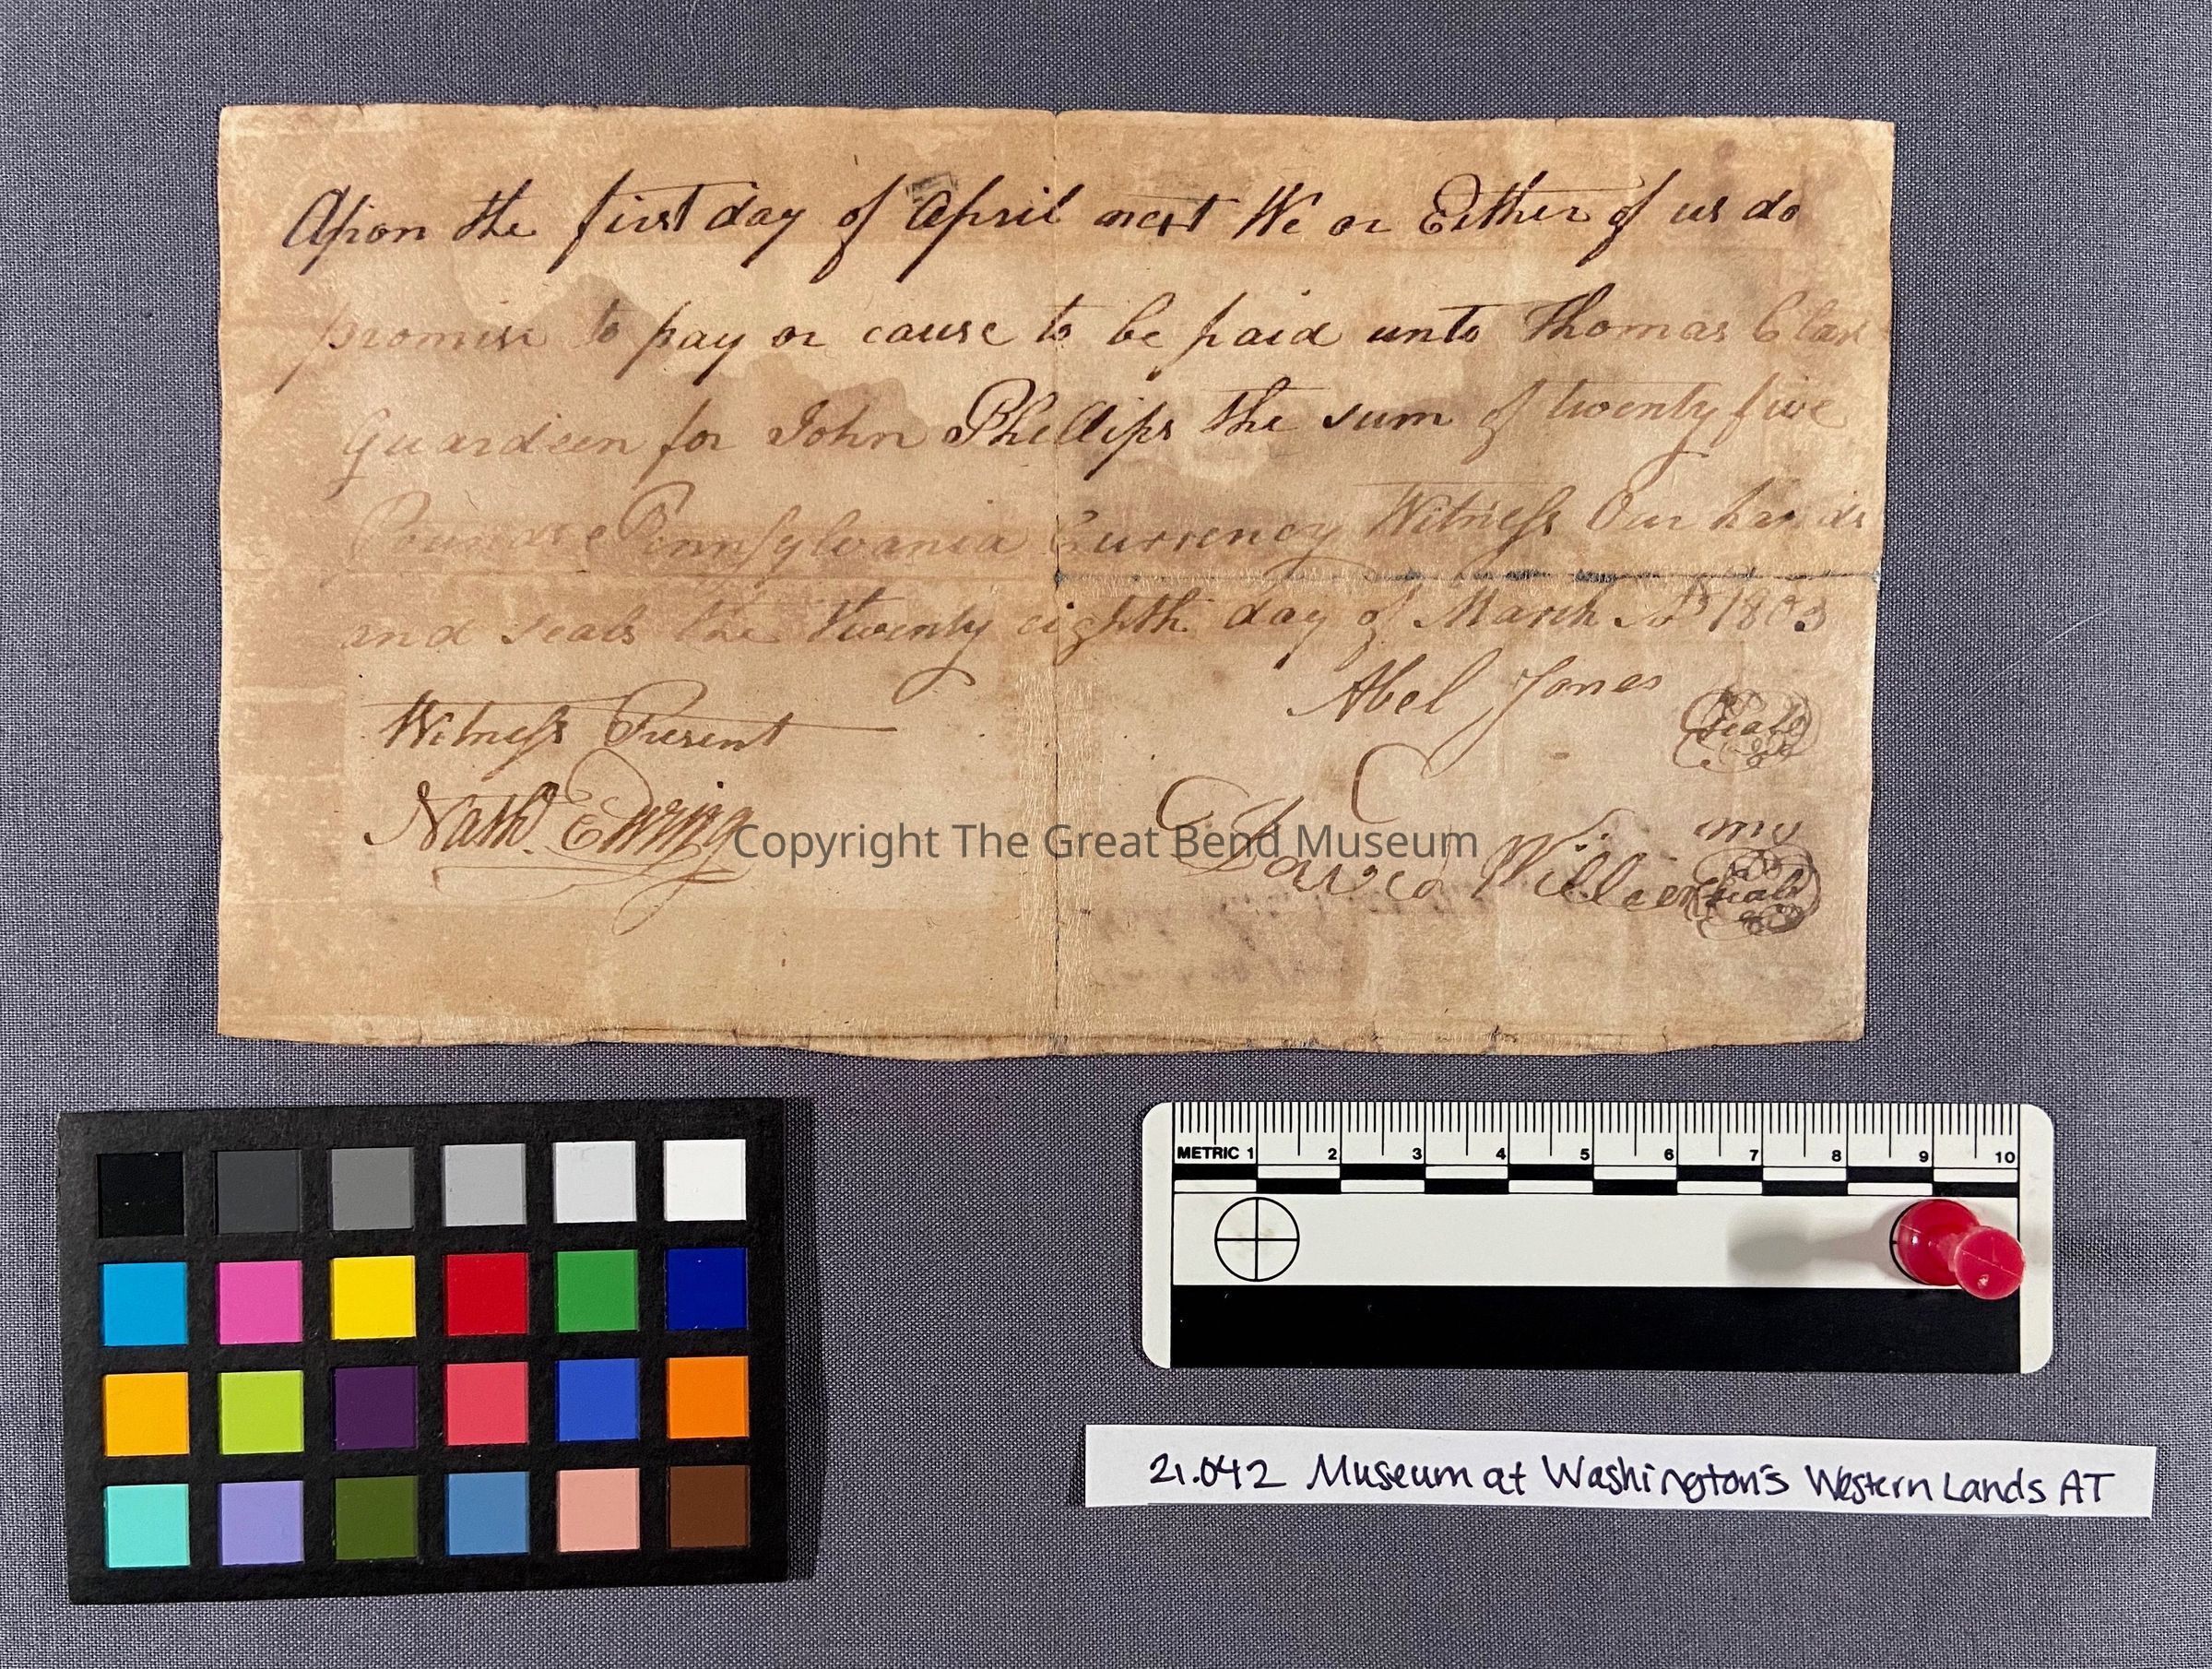 Upon the first day of April next We or Either of us do
promise to pay or cause to be paid unto Thomas Clar
Guardeen for John Phellips the sum of twenty five
Pounds Pennsylvania Currency Witness Our hands
and seals the twenty eighth day of March AD 1803
Abel Jones
Seal
Witness Present
Nathl. Ewing
David William
my
Seal
Copyright The Great Bend Museum
METRIC 1 2 3 4 5 6 7 8 9 10
21.042 Museum at Washington's Western Lands AT